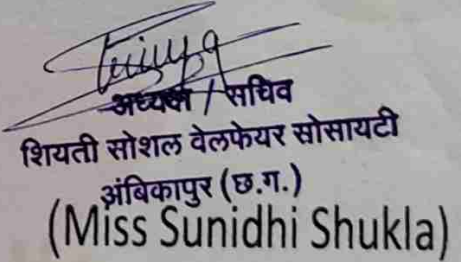 अध्यक्ष / सचिव
शियती सोशल वेलफेयर सोसायटी
अंबिकापुर (छ.ग.)
(Miss Sunidhi Shukla)